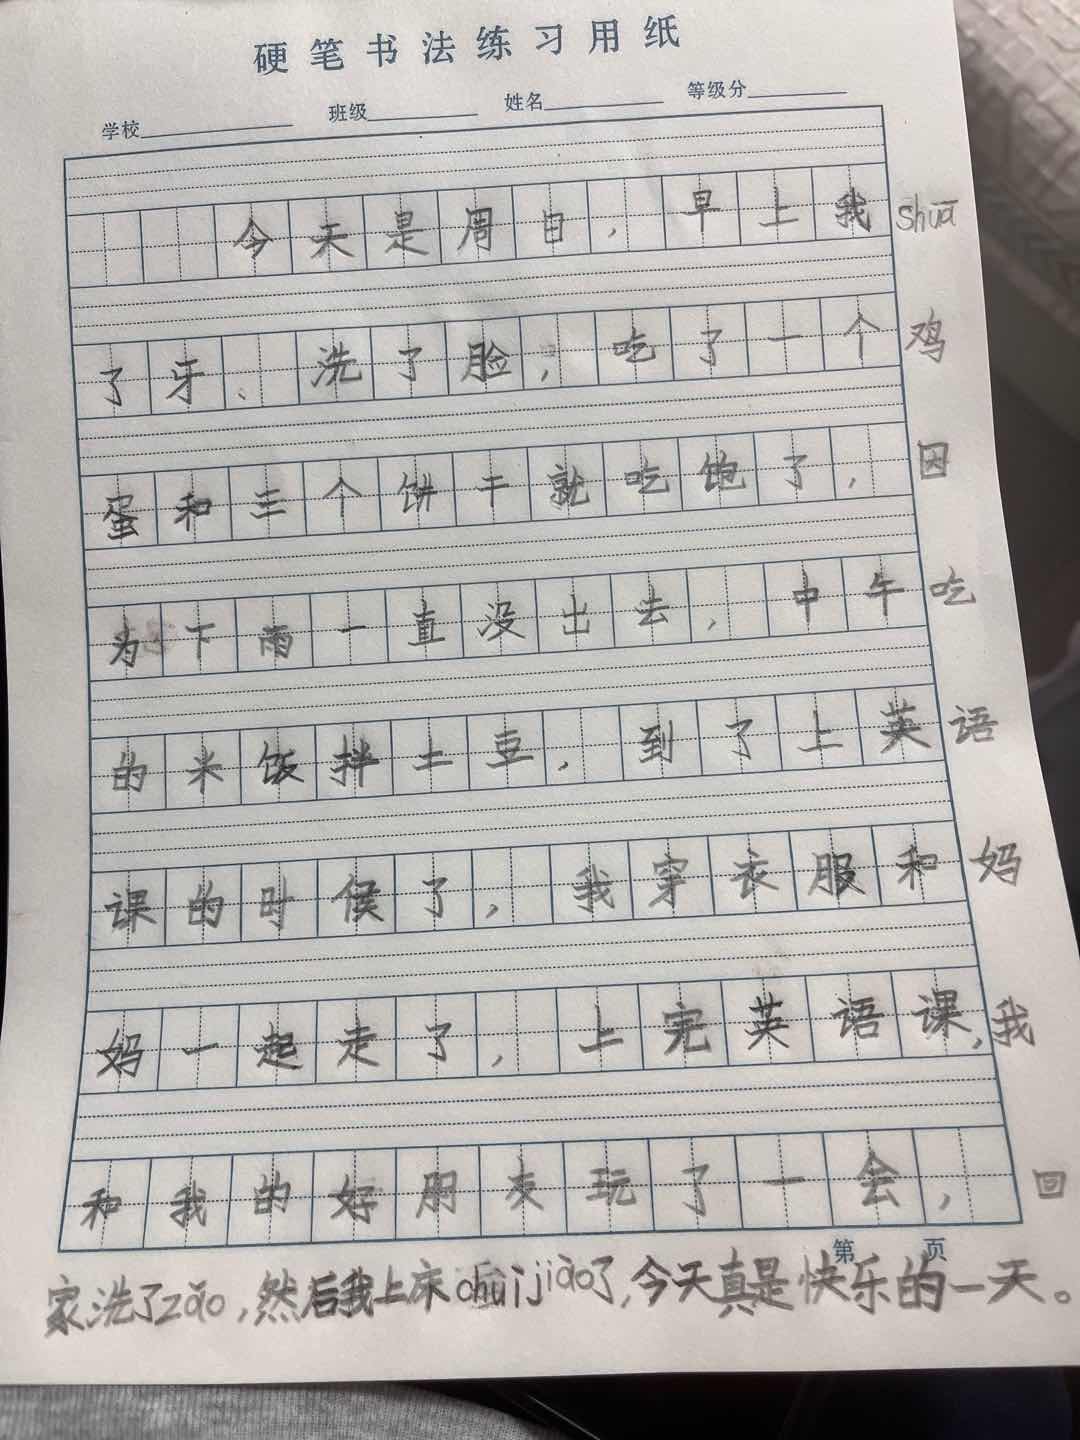 硬笔书法练习用纸
学校 班级 姓名 等级分
今天是周日,早上我shuā
了牙、洗了脸,吃了一个鸡
蛋和三个饼干就吃饱了,因
为下雨一直没出去,中午吃
的米饭拌土豆,到了上英语
课的时候了,我穿衣服和妈
妈一起走了,上完英语课,我
和我的好朋友玩了一会,回
第 页
家洗了zǎo,然后我上床chuījiào了,今天真是快乐的一天。